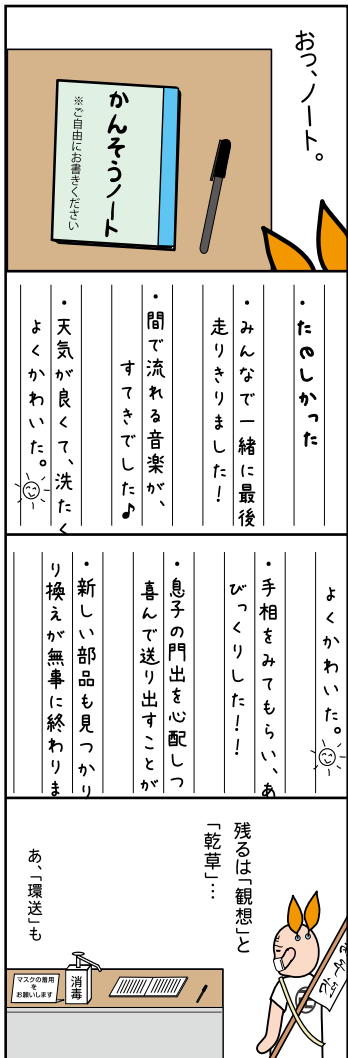 おっ、ノート。
かんそうノート
※ご自由にお書きください
・たのしかった
・みんなで一緒に最後
走りきりました！
・間で流れる音楽が、
すてきでした♪
・天気が良くて、洗たく
よくかわいた。
よくかわいた。
・手相をみてもらい、あ
びっくりした！！
・息子の門出を心配しつ
喜んで送り出すことが
・新しい部品も見つかり
り換えが無事に終わりま
残るは「観想」と
「乾草」…
あ、「環送」も
消毒
マスクの着用
を
お願いします